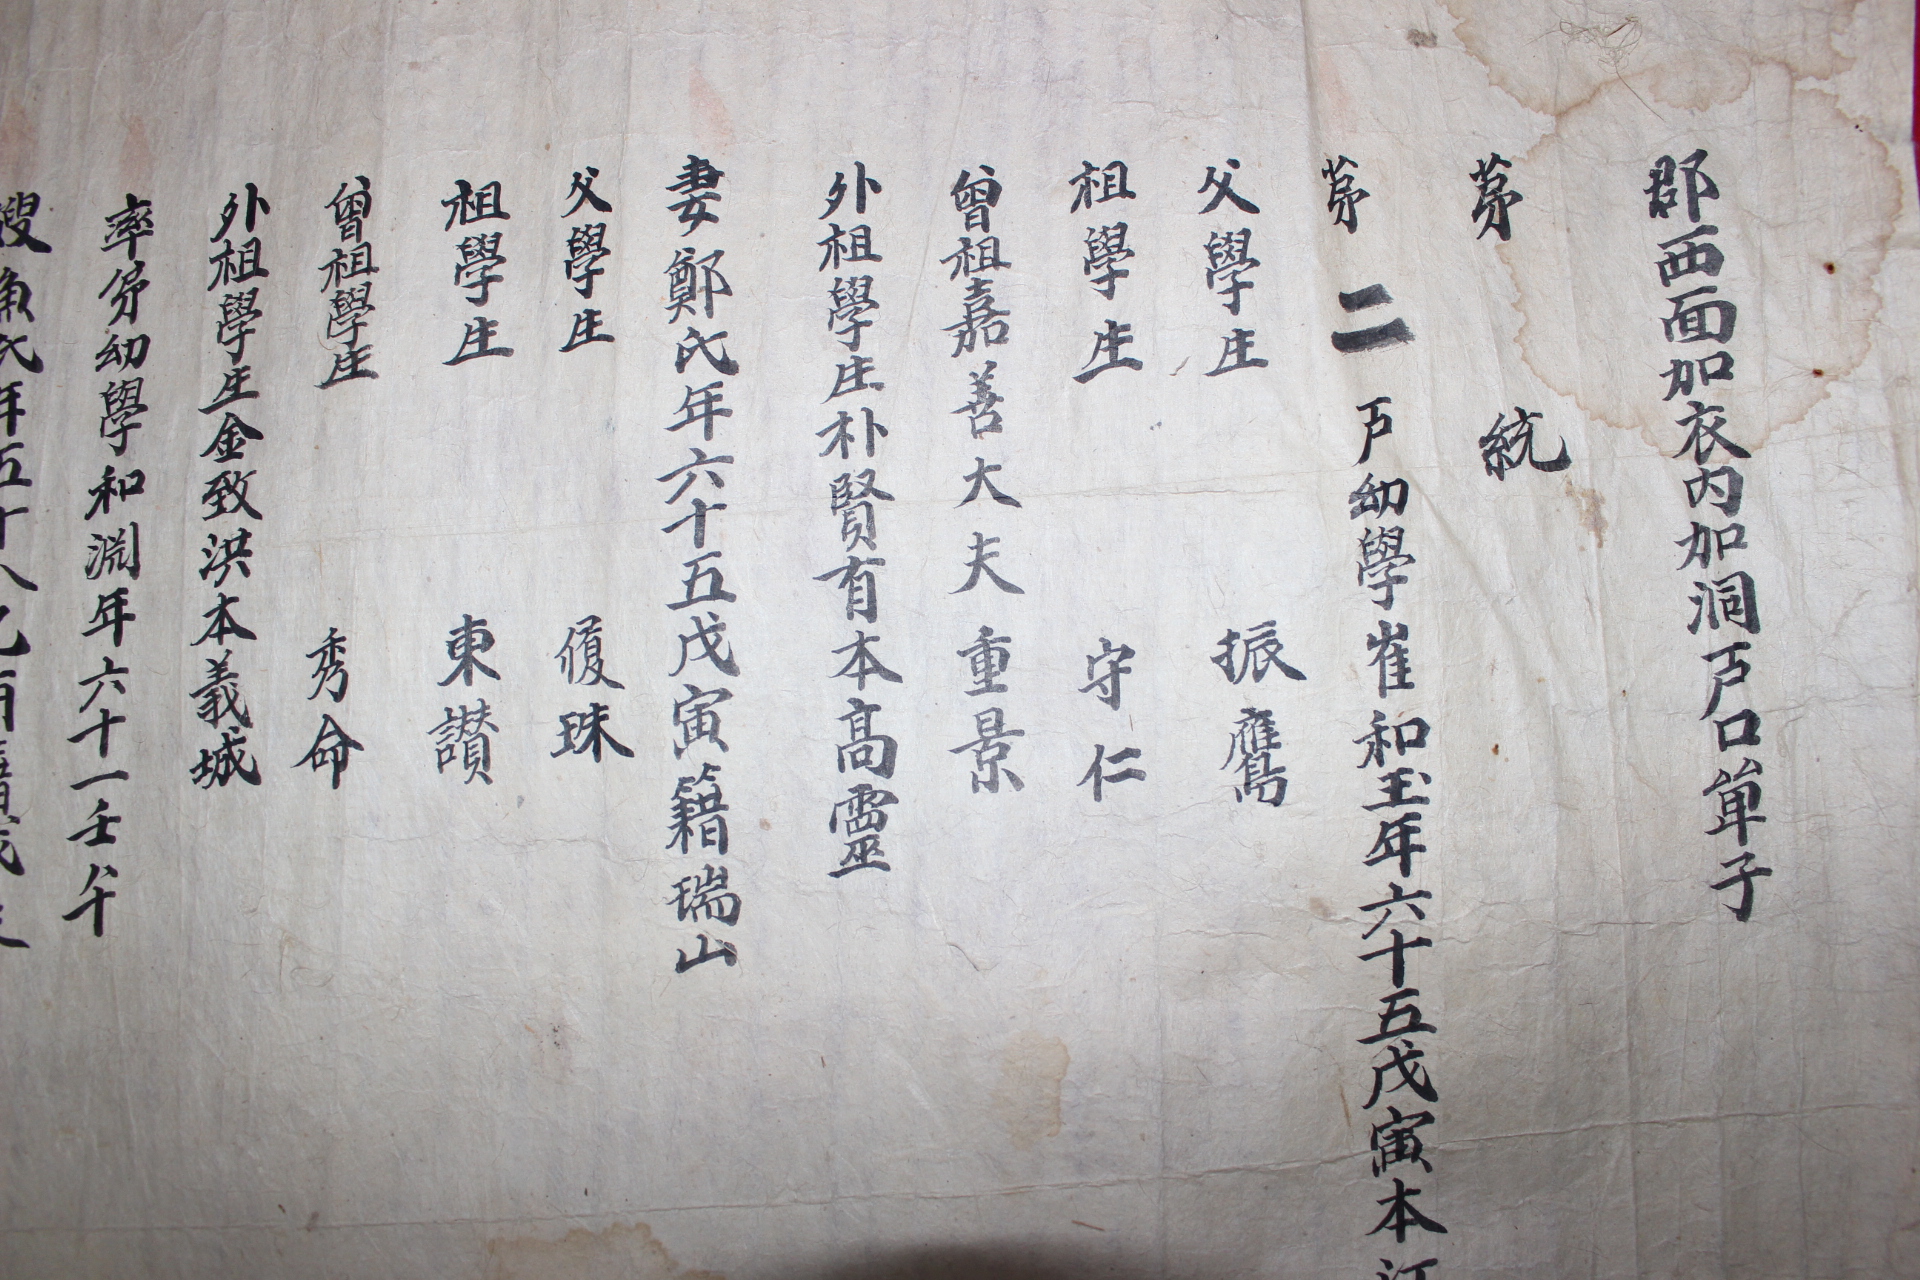 郡西面加衣内加洞戶口單子
苐 統
苐二戶幼學崔和玉年六十五戊寅本江
父學生 振鷹
祖學生 守仁
曾祖嘉善大夫重景
外祖學生朴賢有本高靈
妻鄭氏年六十五戊寅籍瑞山
父學生 復珠
祖學生 東讃
曾祖學生 秀命
外祖學生金致洪本義城
率弟幼學和淵年六十一壬午
嫂 氏年五十八乙酉